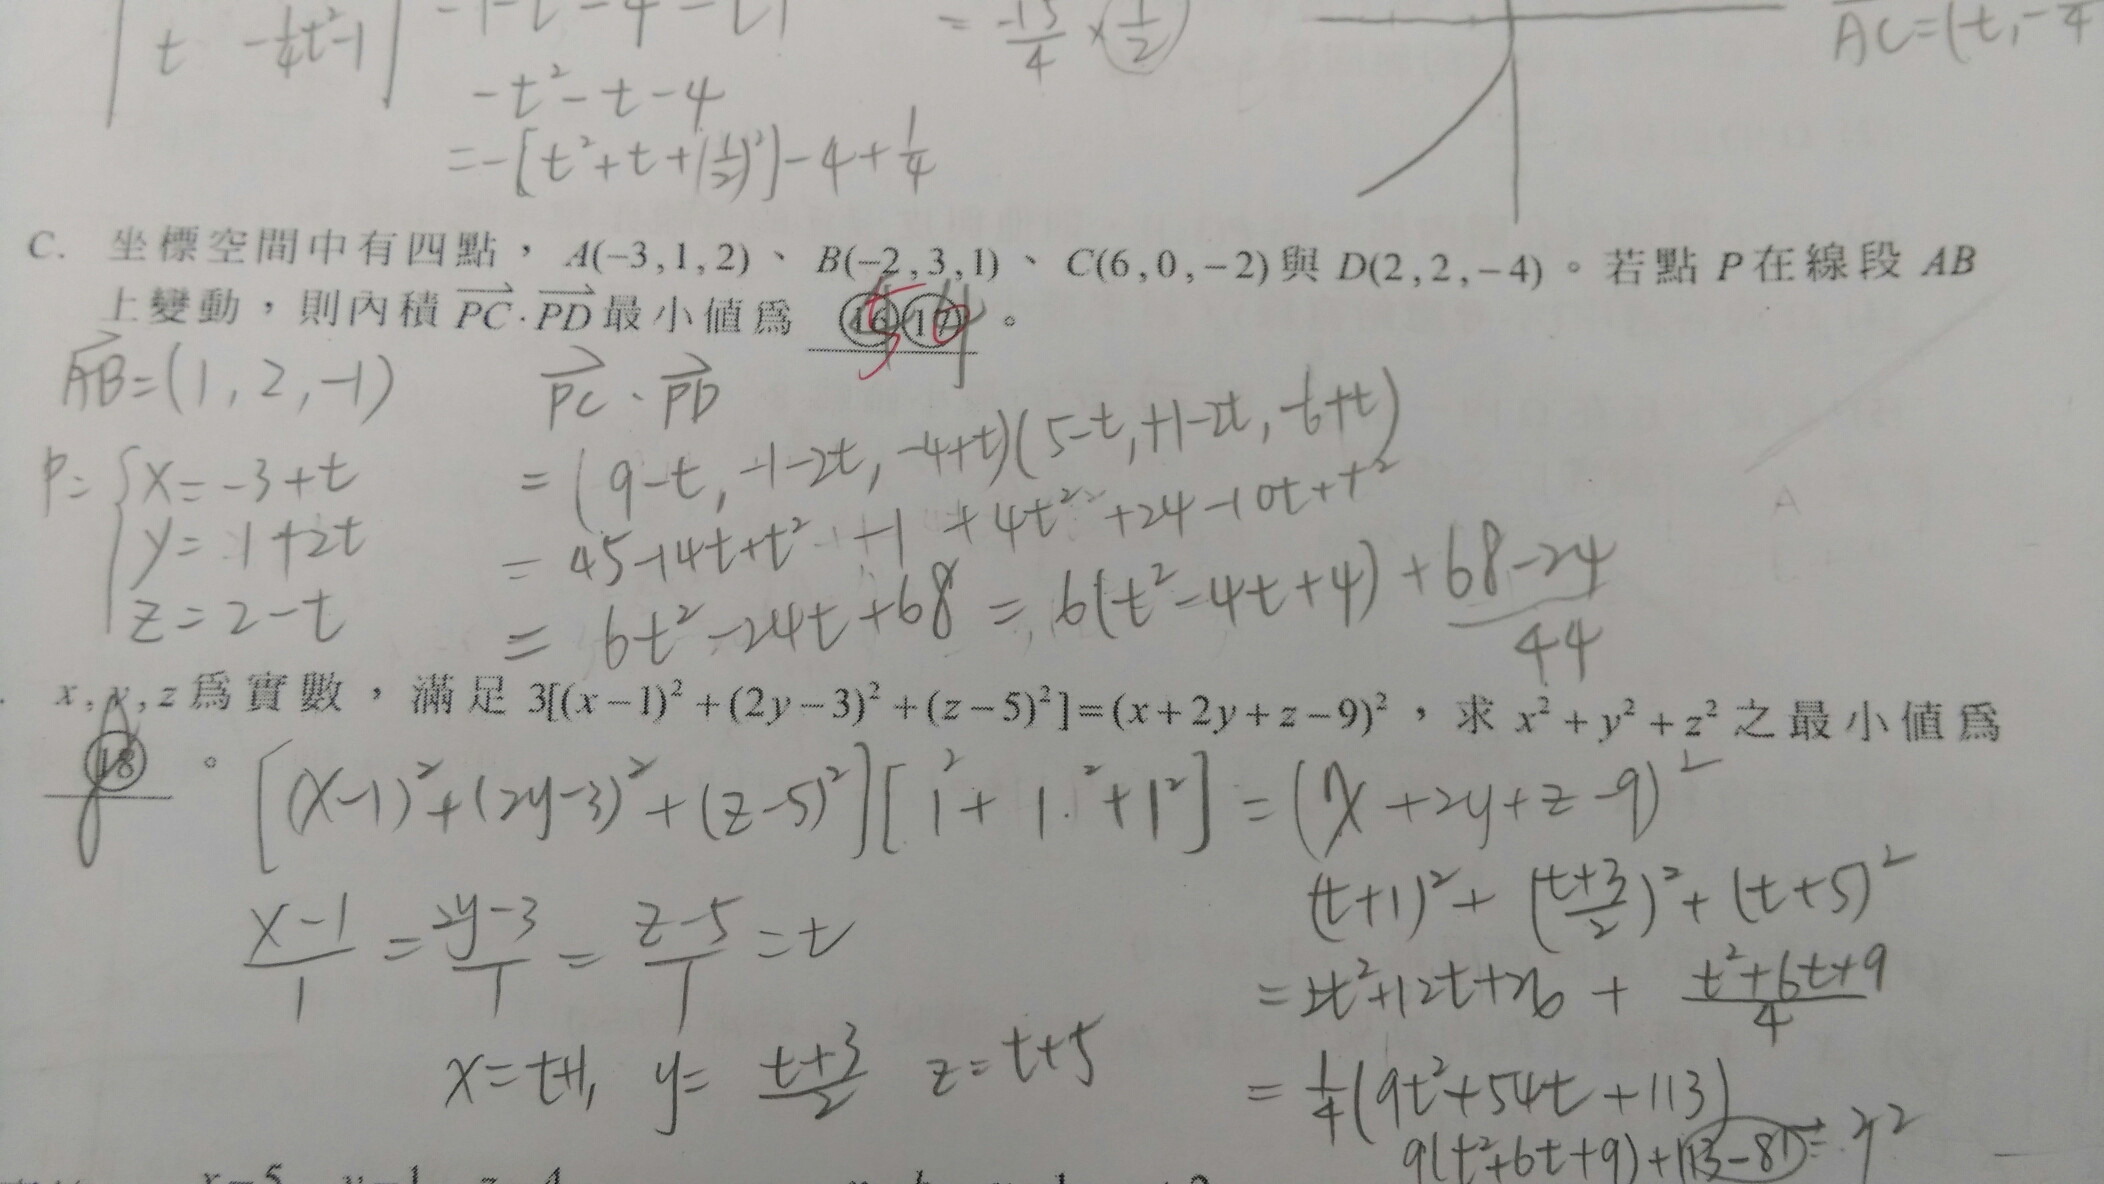 t -1/4t²-1
= -15/4 × 1/2
AC=(t,-
-t²-t-4
=-[t²+t+(1/2)²]-4+1/4
C. 坐標空間中有四點，A(−3,1,2)、B(−2,3,1)、C(6,0,−2)與D(2,2,−4)。若點P在線段AB
上變動，則內積PC·PD最小值爲 ⑯⑰ 。
AB=(1,2,-1)
P= {x=-3+t
y=1+2t
z=2-t
PC·PD
=(9-t,-1-2t,-4+t)(5-t,+1-2t,-6+t)
=45-14t+t² +-1+4t²+24-10t+t²
=6t²-24t+68=6(t²-4t+4)+68-24
44
x,y,z爲實數，滿足3[(x−1)²+(2y−3)²+(z−5)²]=(x+2y+z−9)²，求x²+y²+z²之最小值爲
⑱ 。
[(x-1)²+(2y-3)²+(z-5)²][1²+1²+1²]=(x+2y+z-9)²
x-1/1=2y-3/1=z-5/1=t
x=t+1, y=t+3/2 z=t+5
(t+1)²+(t+3/2)²+(t+5)²
=2t²+12t+26+t²+6t+9/4
=1/4(9t²+54t+113)
9(t²+6t+9)+113-81